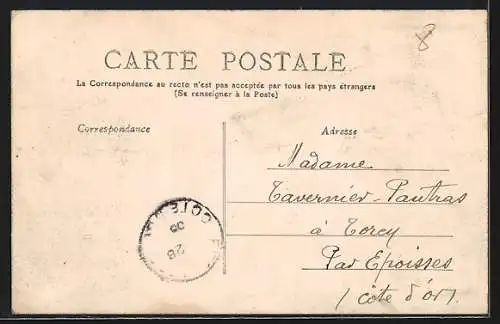 8
CARTE POSTALE
La Correspondance au recto n'est pas acceptée par tous les pays étrangers
(Se renseigner à la Poste)
Correspondance
Adresse
Madame
Tavernier-Pautras
à Torcy
Par Epoisses
(côte d'or)
COTE
28